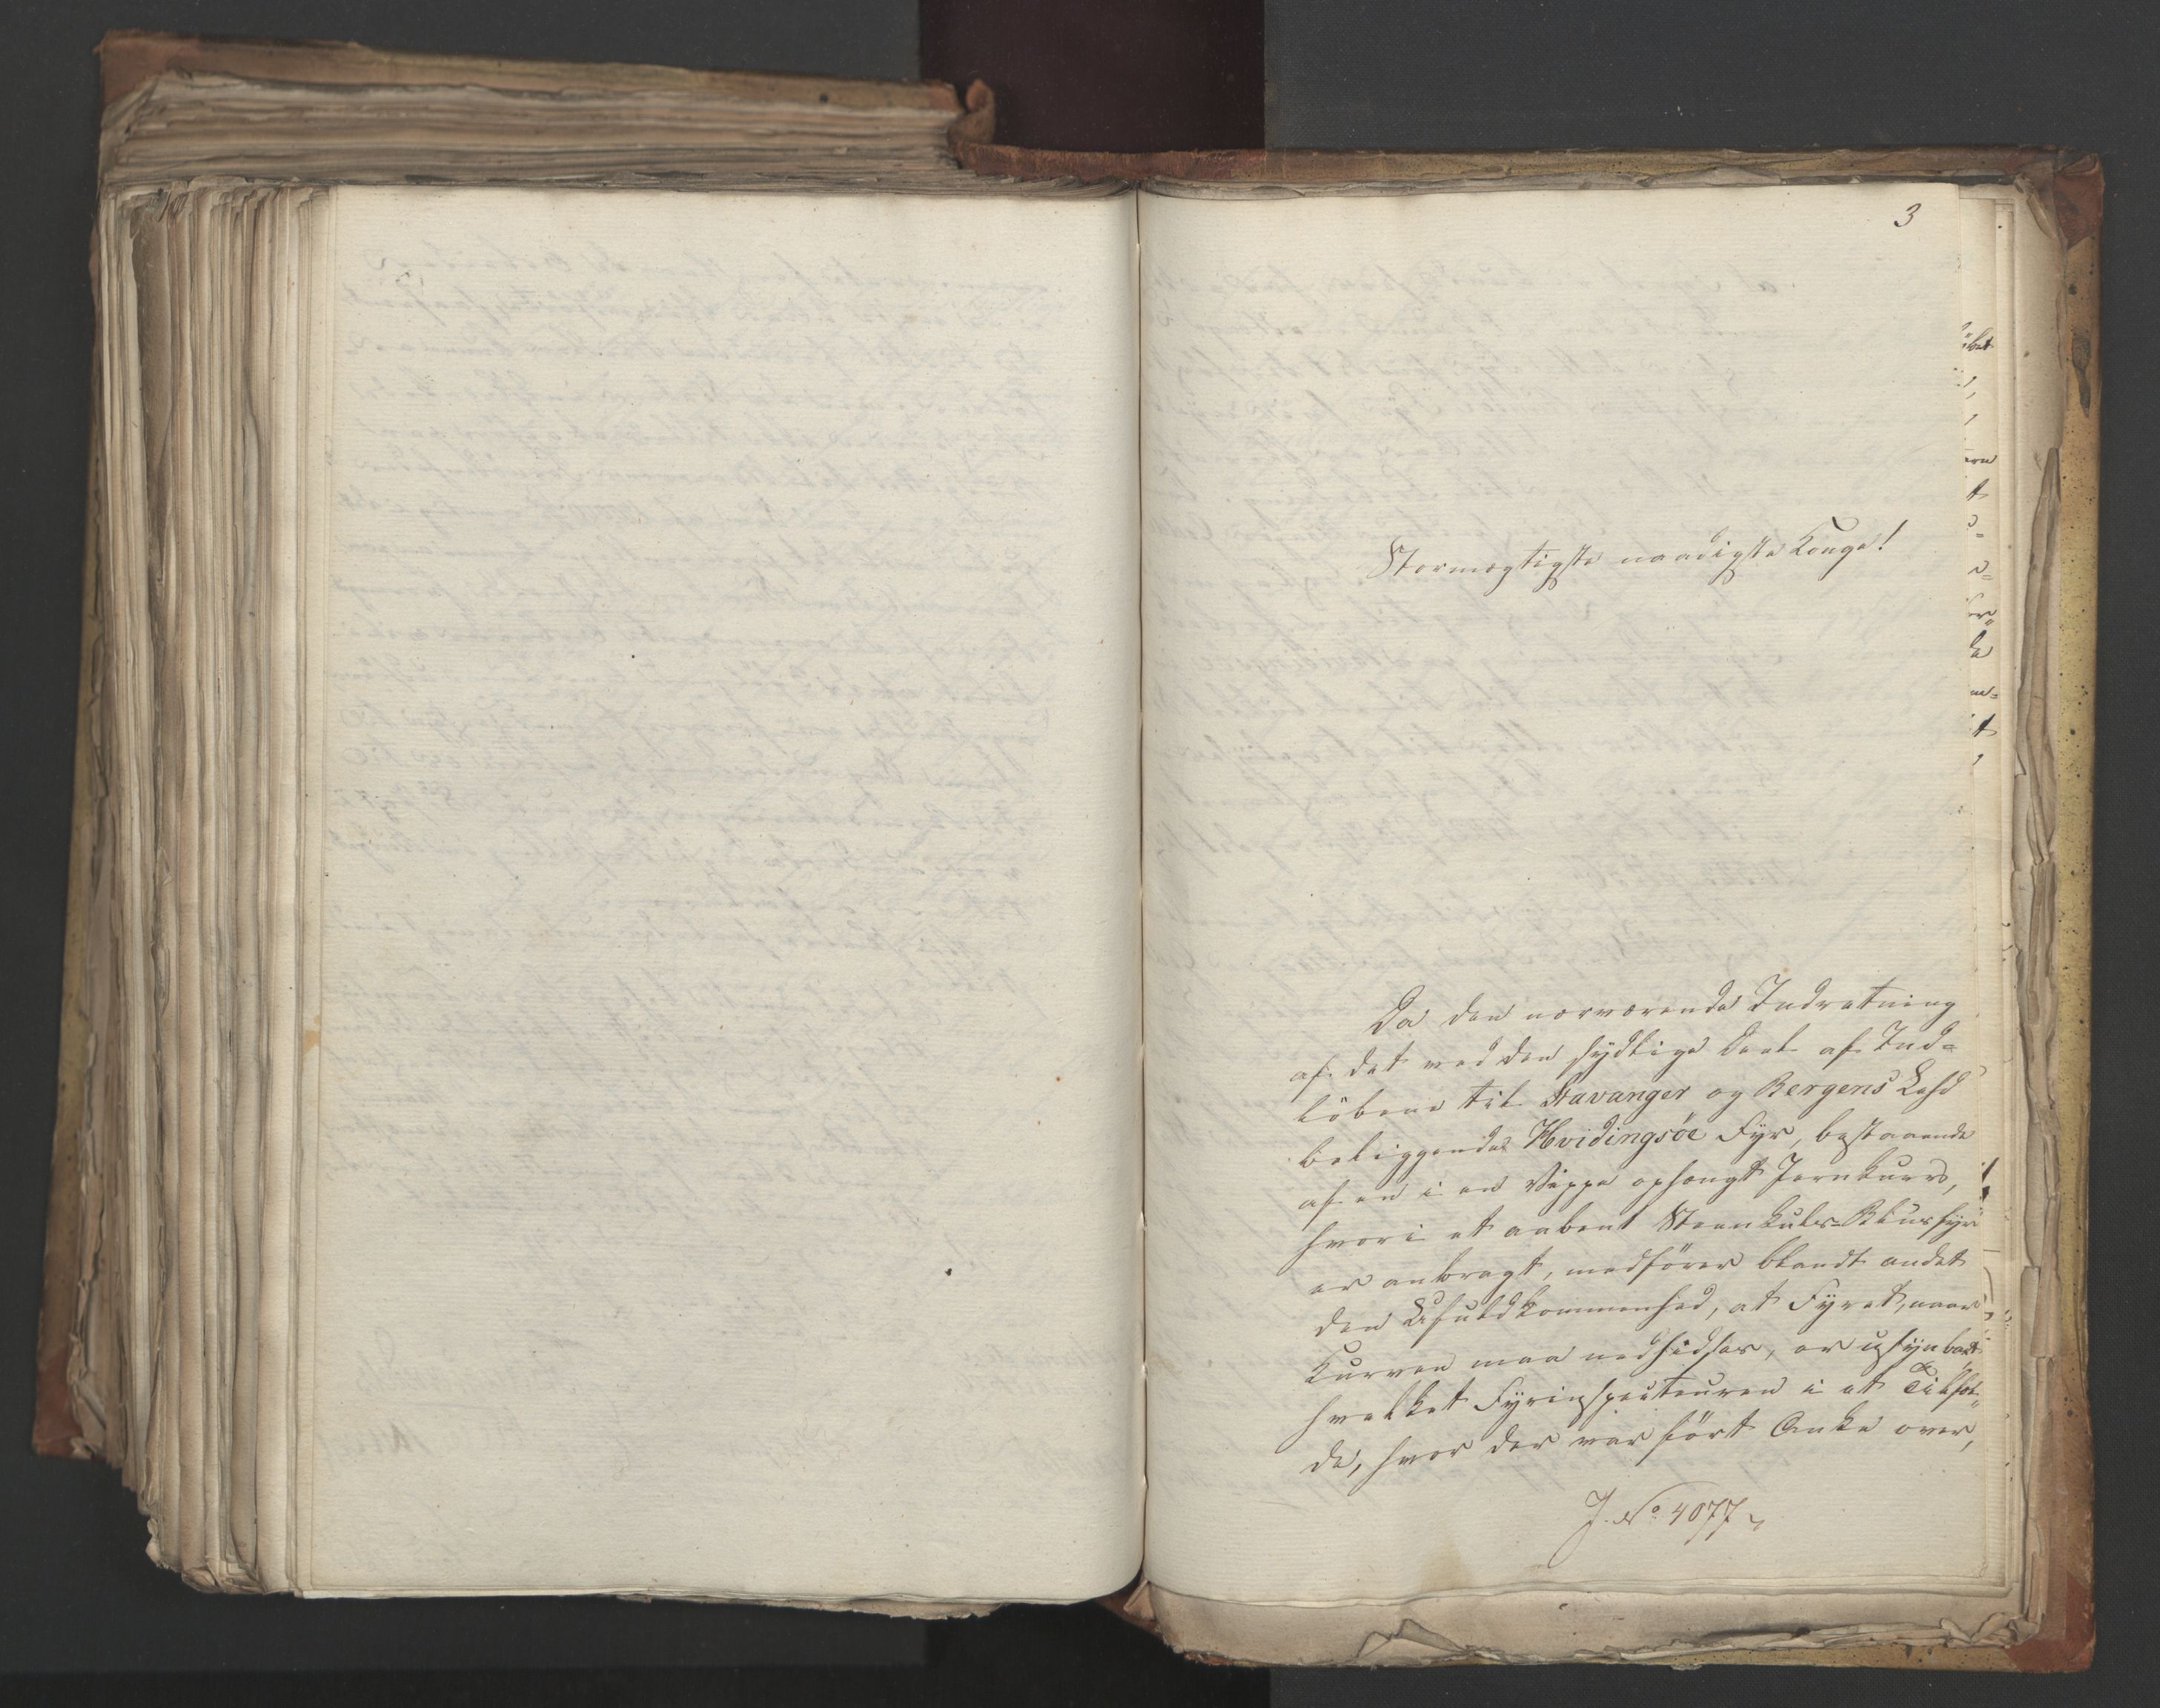 3
Stormægtigste naadigste Konge!
Da den nærværende Indretning
af det ved den sydlige Deel af Ind=
löbene til Stavanger og Bergens Leed
beliggende Hvidingsöe Fyr, bestaaende
af en i en Vippe ophængt Jernkurv,
hvori et aabent Steenkuls-Blusfyr
er anbragt, medförer blandt andet
den Ufuldkommenhed, at Fyret, naar
Kurven maa nedhidses, er usynbart
hvilket Fyrinspecteuren i et Tilfæl„
de, hvor der var fört Anke over,
J. No. 4077